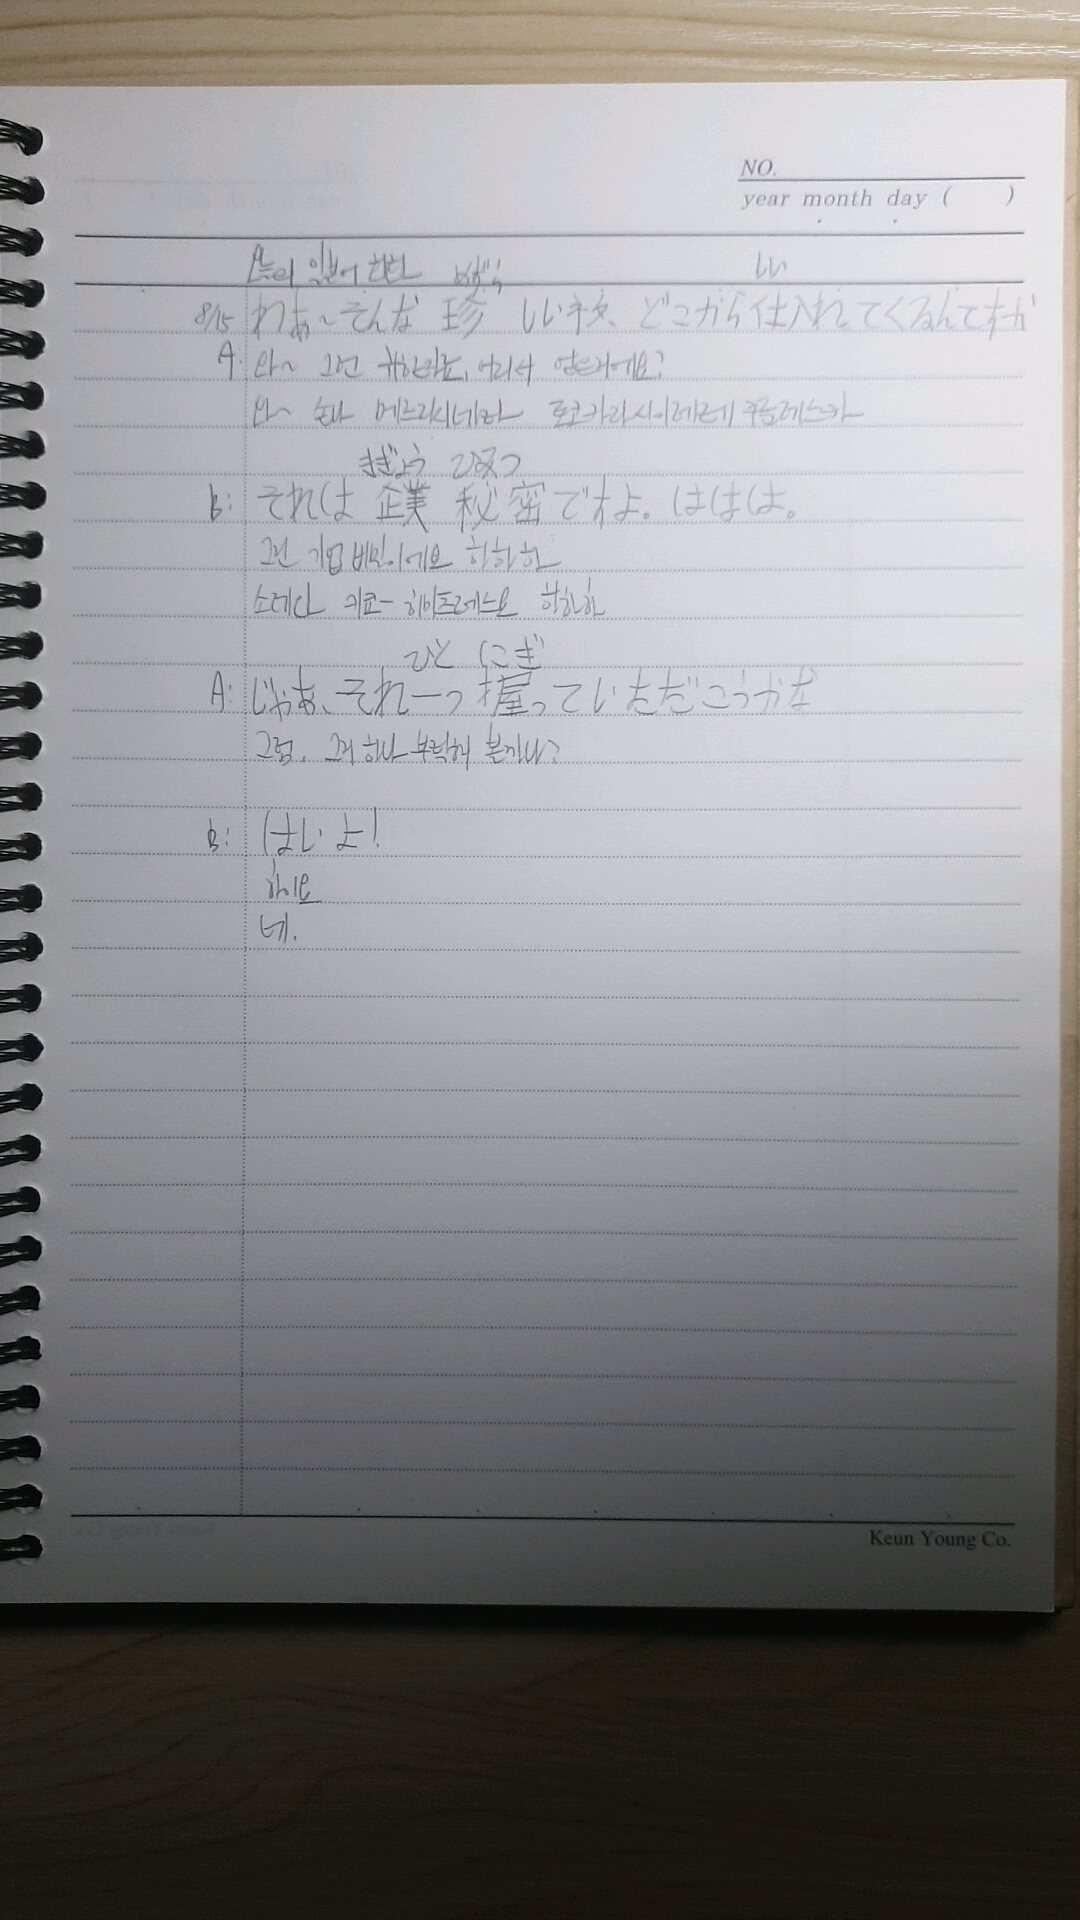 NO.
year month day ( )
오늘의 일본어 회화 めずら しい
8/15 わぁ~そんな 珍 しいネタ、どこから仕入れてくるんですか
A: 와~ 그런 귀한 어디서 얻은거에요?
와~ 손나 메즈라시네타 도코카라시이레테쿠룬데스카
きぎょう ひみつ
B: それは 企業 秘密ですよ。ははは。
그건 기업비밀이에요 하하하
소레와 키쿄- 히미츠데스요 하하하
ひと にぎ
A: じゃあ、それ一つ 握っていただこうかな
그럼, 그거 하나 부탁해 볼까나?
B: はいよ!
하이요
네.
Keun Young Co.